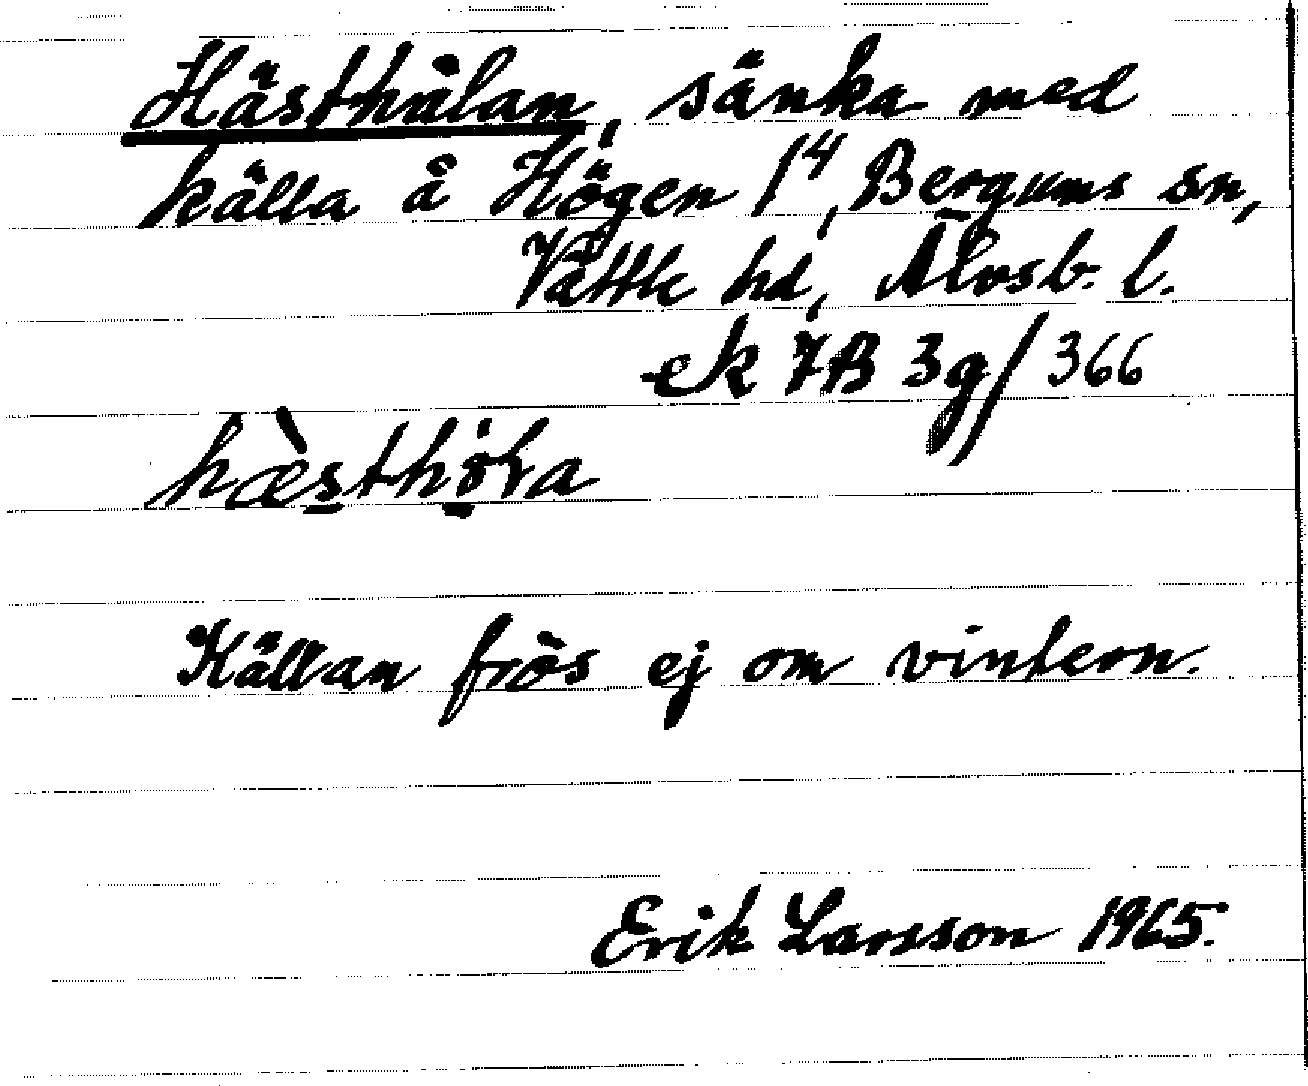 Hästhålan, sänka med
källa å Högen 1⁴, Bergums sn,
Vättle hd, Älvsb. l.
ek 7B 3g/366
hæ̀sthǫ́la
Källan frös ej om vintern.
Erik Larsson 1965.